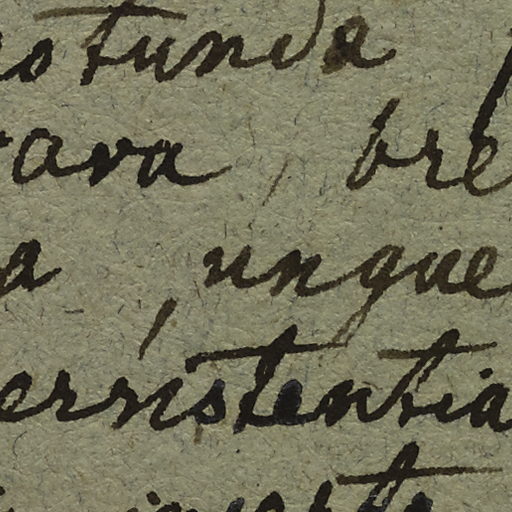 otunda
rava, bre
a, ungue
ersistentia